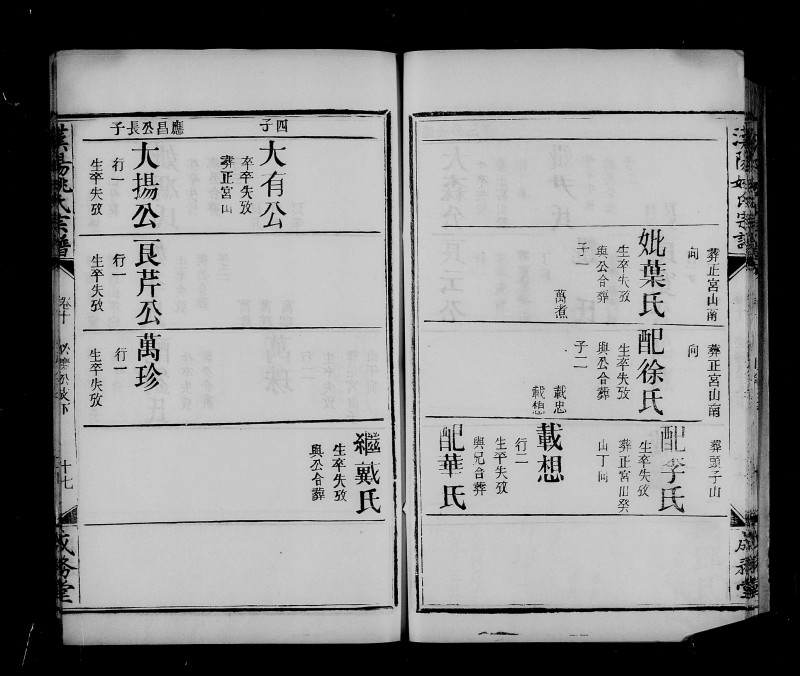 葬正宮山南
向
妣葉氏
生卒失攷
與公合葬
子一
萬煮
葬正宮山南
向
配徐氏
生卒失攷
與公合葬
子二
載忠
載想
葬頭子山
配李氏
生卒失攷
葬正宮山癸
山丁向
載想
行二
生卒失攷
與兄合葬
配華氏
漢陽姚氏宗譜
成務堂
四子
大有公
卒卒失攷
葬正宮山
應昌公長子
大揚公
行一
生卒失攷
艮芹公
行一
生卒失攷
萬珍
行一
生卒失攷
繼戴氏
生卒失攷
與公合葬
漢陽姚氏宗譜
卷十
十七
成務堂